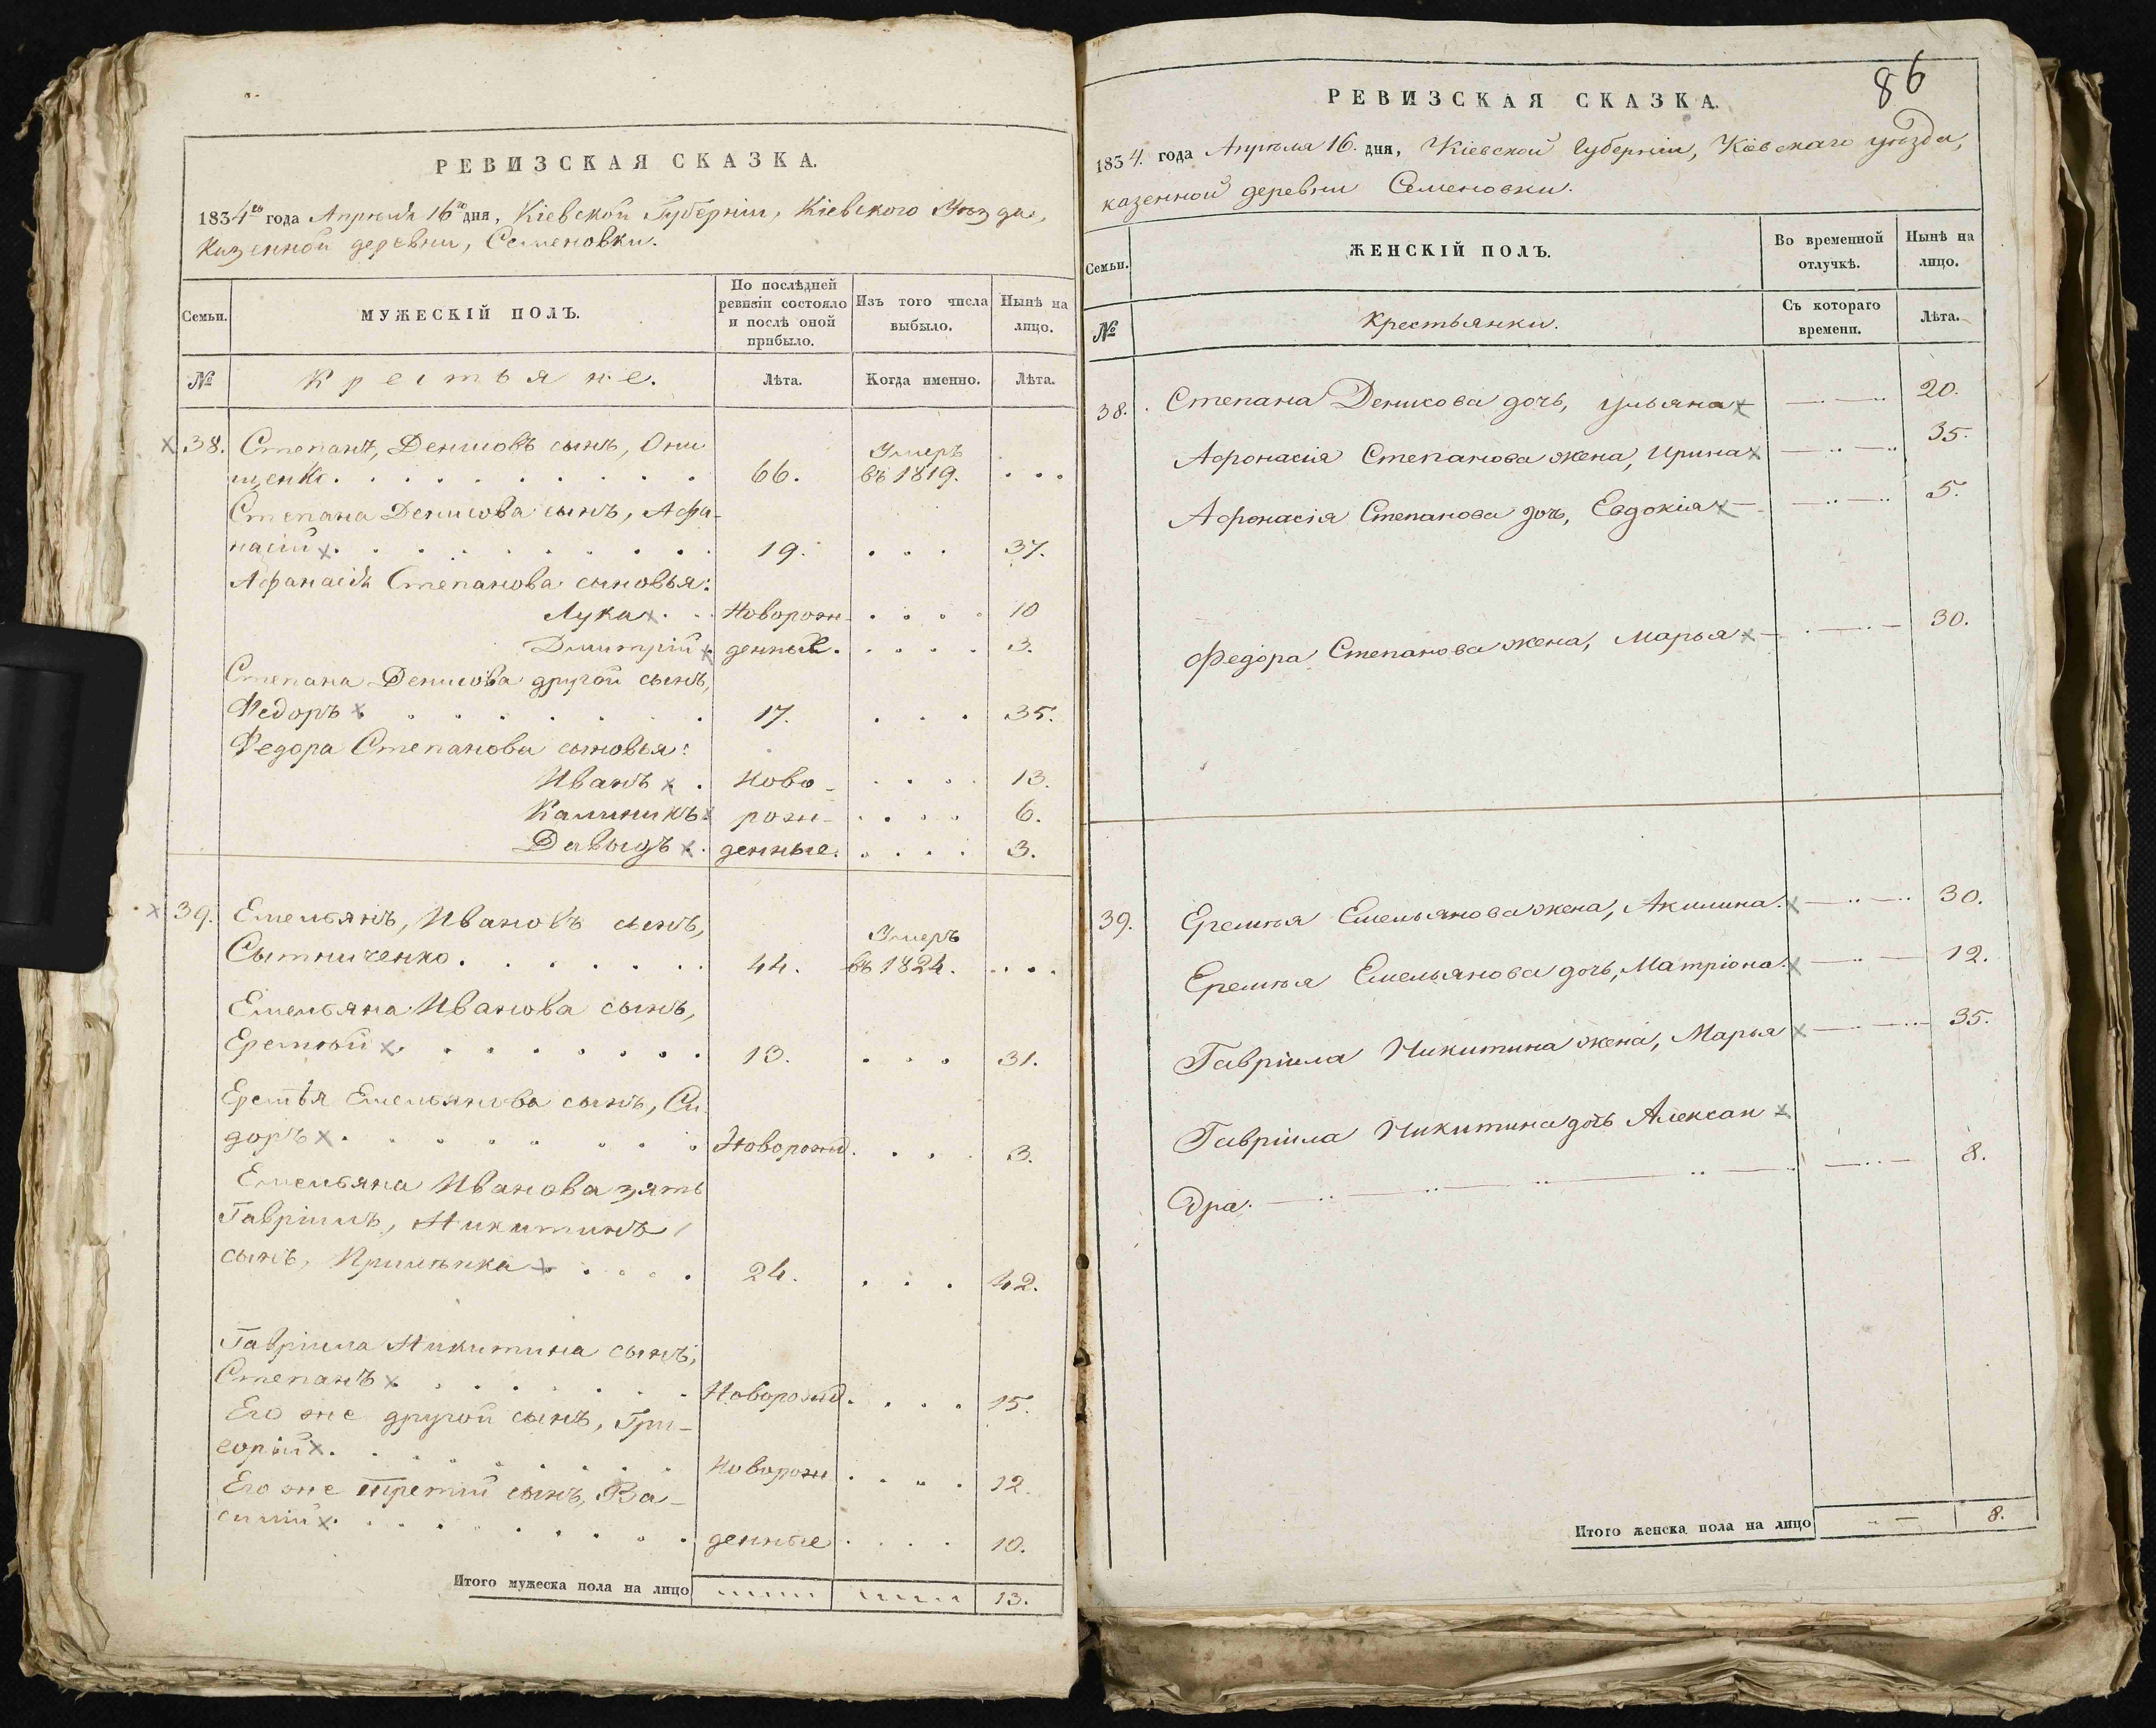 РЕВИЗСКАЯ СКАЗКА.
1834го года Апрѣля 16го дня, Кіевской Губерніи, Кіевского Уѣзда,
Казенной деревни, Семеновки.
Семьи.
МУЖЕСКІЙ ПОЛЪ.
По послѣдней
ревизіи состояло
и послѣ оной
прибыло.
Изъ того числа
выбыло.
Нынѣ на
лицо.
№
Крестьяне.
Лѣта.
Когда именно.
Лѣта.
38. Степанъ, Денисовъ сынъ, Они
Умеръ
щенко. 66. въ 1819.
Степана Денисова сынъ, Афа-
насій 19. 37.
Афанасія Степанова сыновья:
Лука Новорож- 10
Дмитрій денные. 3.
Степана Денисова другой сынъ,
Федоръ 17. 35.
Федора Степанова сыновья:
Иванъ Ново- 13.
Калиникъ рож- 6.
Давыдъ денные. 3.
39. Емельянъ, Ивановъ сынъ,
Умеръ
Сытниченко. 44. въ 1824.
Емельяна Иванова сынъ,
Еремѣй 13. 31.
Еремѣя Емельянова сынъ, Си
доръ Новорожд. 3.
Емельяна Иванова зять
Гавріилъ, Никитинъ
сынъ, 24. 42.
Гавріила Никитина сынъ,
Степанъ Новорожд. 15.
Его же другой сынъ, Гри-
горій Новорож 12.
Его же третій сынъ, Ва-
силій денные 10.
Итого мужеска пола на лицо 13.
86
РЕВИЗСКАЯ СКАЗКА.
1834. года Апрѣля 16. дня, Кіевской Губерніи, Кіевскаго уѣзда,
казенной деревни Семеновки.
Семьи.
ЖЕНСКІЙ ПОЛЪ.
Во временной
отлучкѣ.
Нынѣ на
лицо.
№
Крестьянки.
Съ котораго
времени.
Лѣта.
38. Степана Денисова дочь, Ульяна 20.
Афонасія Степанова жена, Ирина 35.
Афонасія Степанова дочь, Евдокія 5.
Федора Степанова жена, Марья 30.
39. Еремѣя Емельянова жена, Акилина. 30.
Еремѣя Емельянова дочь, Матріона. 12.
Гавріила Никитина жена, Марья 35.
Гавріила Никитина дочь Алексан
дра. 8.
Итого женска пола на лицо 8.